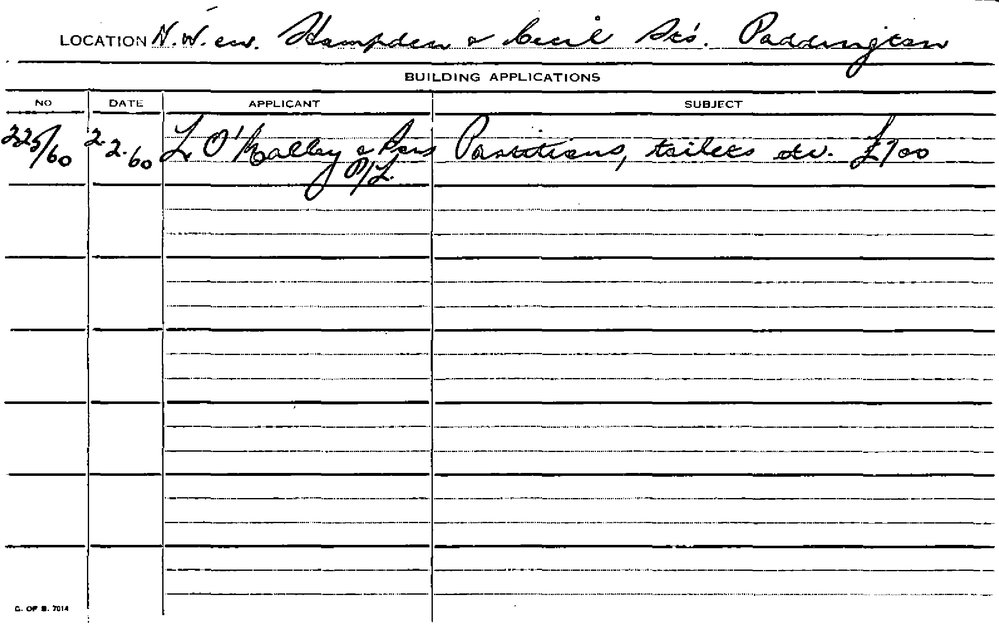 LOCATION N.W. cnr. Hampden & Cecil Sts. Paddington
BUILDING APPLICATIONS
NO DATE APPLICANT SUBJECT
225/60 2.2.60 L O'Malley & Sons Partitions, toilets etc. £700
P/L.
C. OF S. 7014